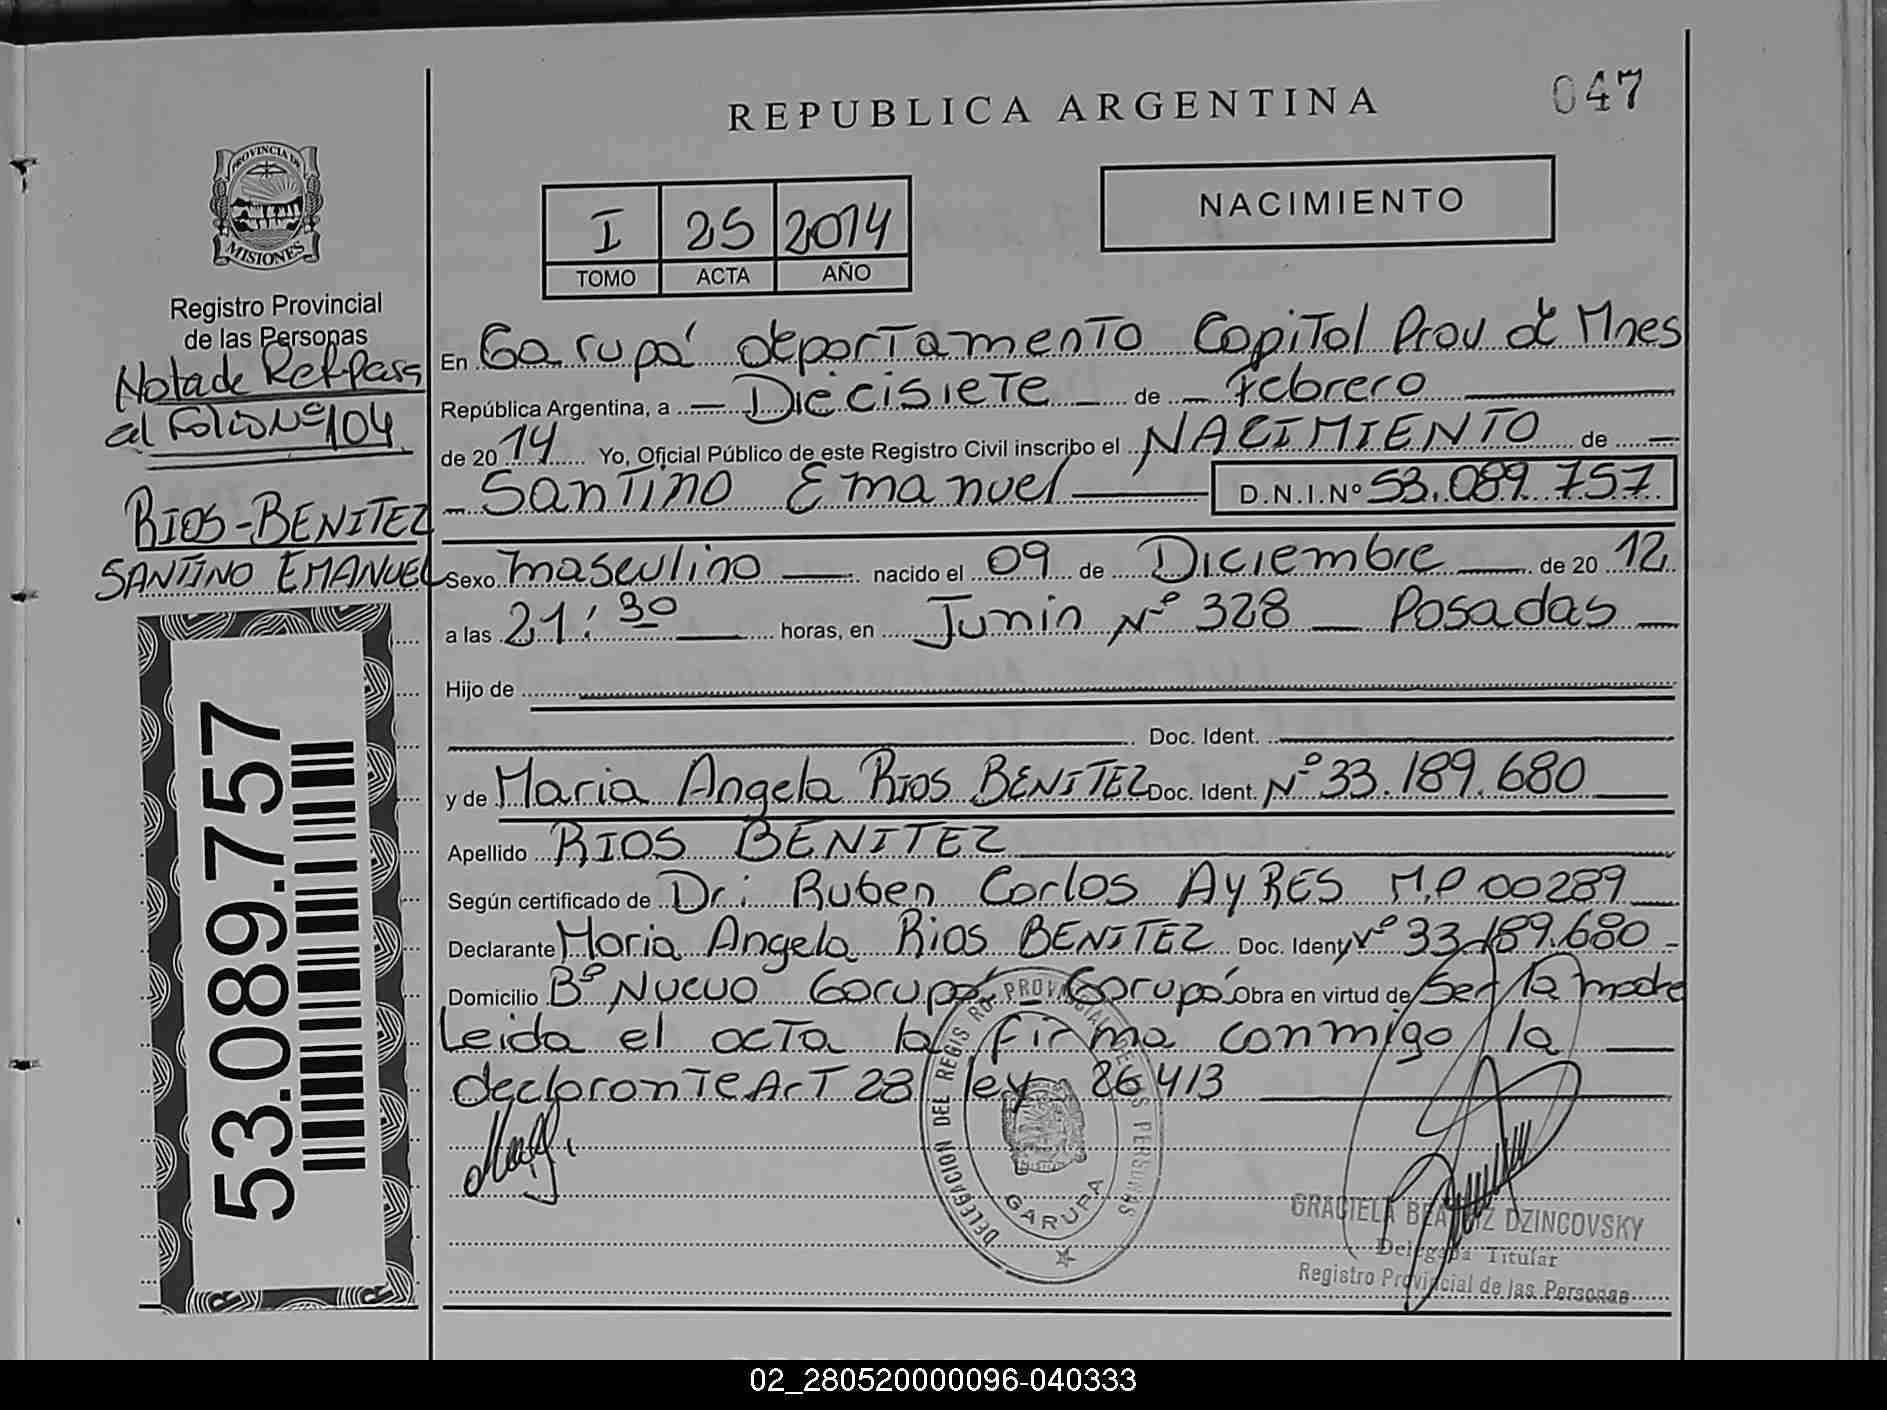 REPUBLICA ARGENTINA
047
PROVINCIA DE
MISIONES
I 25 2014
TOMO ACTA AÑO
NACIMIENTO
Registro Provincial
de las Personas
Nota de Ref Pasa
al Folio Nº 104
RIOS-BENITEZ
SANTINO EMANUEL
53.089.757
En Garupá departamento Capital Prov de Mnes
República Argentina, a — Diecisiete — de — Febrero
de 20 14 Yo, Oficial Público de este Registro Civil inscribo el NACIMIENTO de —
— Santino Emanuel — D.N.I.Nº 53.089.757
Sexo masculino — nacido el 09 de Diciembre — de 20 12
a las 21:30 — horas, en Junin Nº 328 — Posadas —
Hijo de
Doc. Ident.
y de Maria Angela Rios BENITEZ Doc. Ident. Nº 33.189.680
Apellido RIOS BENITEZ
Según certificado de Dr: Ruben Carlos AYRES M.P 00289
Declarante Maria Angela Rios BENITEZ Doc. Ident Nº 33.189.680 -
Domicilio Bº Nuevo Garupá - Garupá Obra en virtud de Ser la madre
Leida el acta la firma conmigo la
declarante Art 28 ley 26413
DELEGACION DEL REGISTRO PROVINCIAL DE LAS PERSONAS
GARUPA
GRACIELA BEATRIZ DZINCOVSKY
Delegada Titular
Registro Provincial de las Personas
02_280520000096-040333